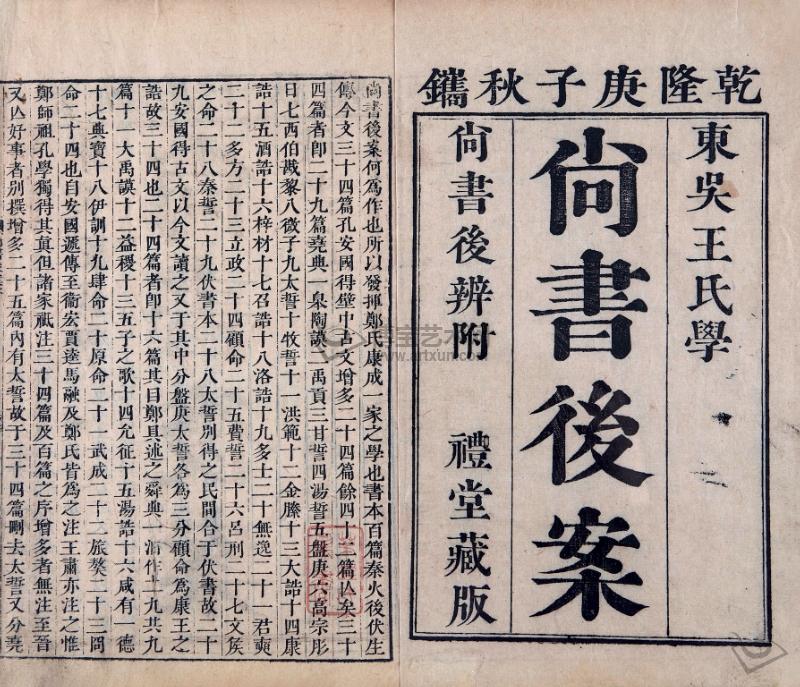 乾隆庚子秋鐫
東吳王氏學
尙書後案
尙書後辨附　禮堂藏版
尙書後案何爲作也所以發揮鄭氏康成一家之學也書本百篇秦火後伏生
傳今文三十四篇孔安國得壁中古文增多二十四篇餘四十二篇亾矣三十
四篇者卽二十九篇堯典一臯陶謨二禹貢三甘誓四湯誓五盤庚六高宗肜
日七西伯戡黎八微子九太誓十牧誓十一洪範十二金縢十三大誥十四康
誥十五酒誥十六梓材十七召誥十八洛誥十九多士二十無逸二十一君奭
二十二多方二十三立政二十四顧命二十五費誓二十六呂刑二十七文侯
之命二十八秦誓二十九伏書本二十八太誓別得之民間合于伏書故二十
九安國得古文以今文讀之又于其中分盤庚太誓各爲三分顧命爲康王之
誥故三十四也二十四篇者卽十六篇其目鄭具述之舜典一汨作二九共九
篇十一大禹謨十二益稷十三五子之歌十四允征十五湯誥十六咸有一德
十七典寶十八伊訓十九肆命二十原命二十一武成二十二旅獒二十三冏
命二十四也自安國遞傳至衞宏賈逵馬融及鄭氏皆爲之注王肅亦注之惟
鄭師祖孔學獨得其眞但諸家祇注三十四篇及百篇之序增多者無注至晉
又亾好事者別撰增多二十五篇內有太誓故于三十四篇刪去太誓又分堯
www.artxun.com